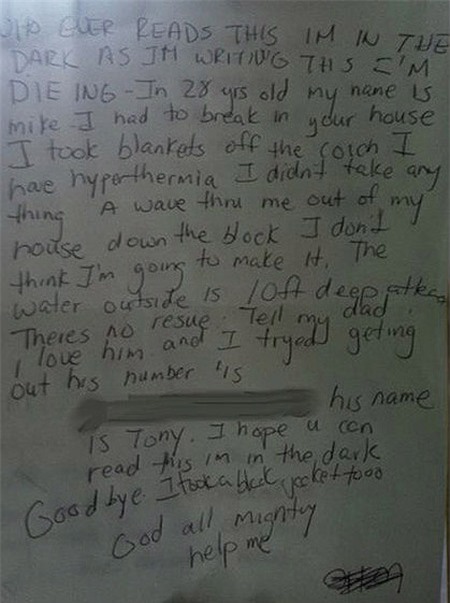 WHO EVER READS THIS IM IN THE
DARK AS IM WRITING THIS I'M
DIEING - In 28 yrs old my name is
mike - I had to break in your house
I took blankets off the coich I
have hyperthermia I didn't take any
thing A wave thru me out of my
house down the block I don't
think I'm going to make it. The
water outside is 10ft deep atleast
Theres no resue. Tell my dad
I love him and I tryed geting
out his number is
his name
is Tony. I hope u can
read this im in the dark
Goodbye. I took a black jacket tooo
God all mighty
help me